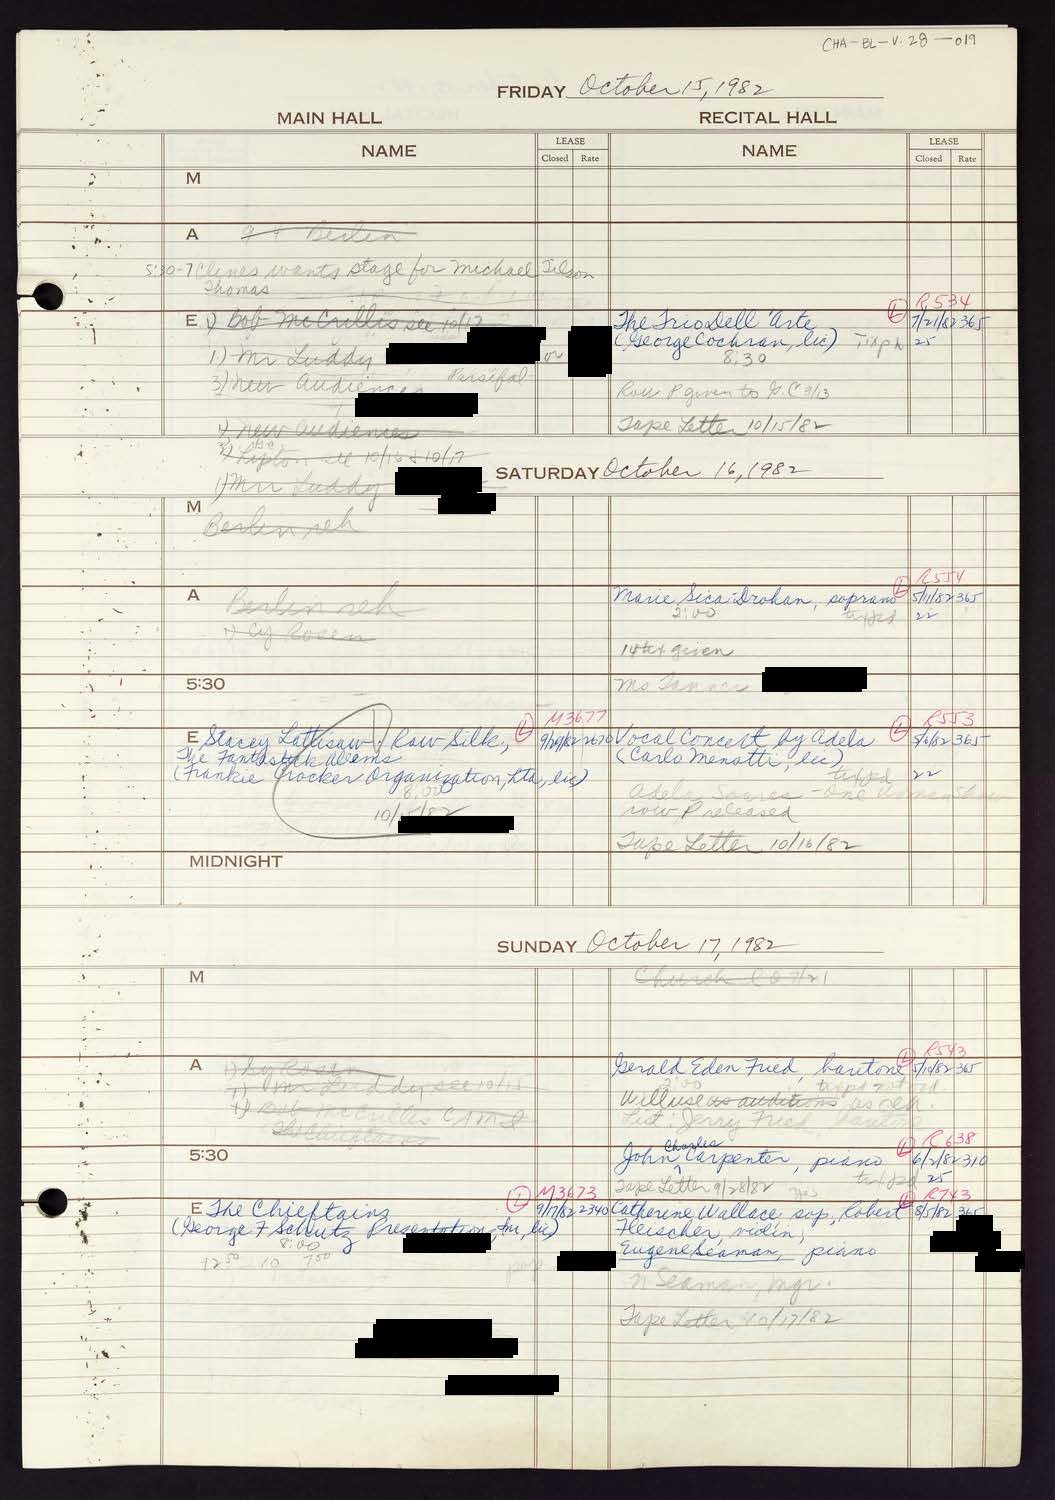 CHA-BL-V.28-019
FRIDAY October 15, 1982
MAIN HALL
RECITAL HALL
NAME
LEASE
Closed Rate
NAME
LEASE
Closed Rate
M
A
g & Berlin
5:30-7 Clines wants stage for Michael Tilson
Thomas
E 1) Bob McCrillis see 10/17
1) Mr Luddy
or
3) New Audiences
Parsifal
1) New Audiences
Lipton see 10/16 & 10/17
1) Mr Luddy
R534
L
The Trio Dell 'Arte
7/21/82 365
(George Cochran, lic)
25
8:30
Row P given to G.C 9/13
Tape Letter 10/15/82
SATURDAY October 16, 1982
M
Berlin reh
A
Berlin reh
1) Cy Rosen
R554
L
Marie Sica-Drohan, soprano
5/11/82 365
2:00
22
14 tix given
5:30
M3677
L
E Stacey Lattisaw; Raw Silk,
9/29/82 2670
The Fantastik Aleems
(Frankie Crocker Organization, Ltd, lic)
8:00
10/15/82
R553
L
Vocal Concert by Adela
5/6/82 365
(Carlo Menotti, lic)
22
Adela Soares - One Woman Show
row P released
Tape Letter 10/16/82
MIDNIGHT
SUNDAY October 17, 1982
M
Church LO 7/21
A
1) Cy Rosen
1) Mr Luddy see 10/15
1) Bob McCrillis CAMI
The Chieftains
R543
L
Gerald Eden Fried, baritone
5/10/82 365
2:00
Will use as auditions as reh.
List: Jerry Fried, baritone
5:30
R638
L
John Charles Carpenter, piano
6/2/82 310
Tape Letter 9/28/82 yes
25
M3673
L
E The Chieftains
9/17/82 2340
(George F Schutz Presentation, Inc, lic)
8:00
12 50 - 10 7 50
pop
R743
L
Catherine Wallace sop, Robert
8/5/82 365
Fleischer, violin,
Eugene Seaman, piano
N Seaman, mgr.
Tape Letter 10/17/82